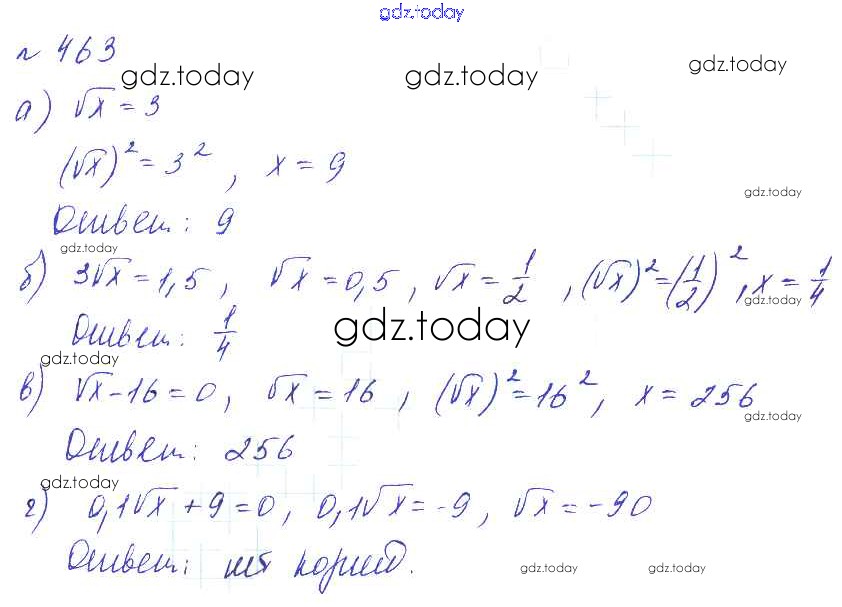 gdz.today
№ 463
gdz.today gdz.today gdz.today
а) √x = 3
(√x)² = 3², x = 9
gdz.today
Ответ: 9
gdz.today
б) 3√x = 1,5, √x = 0,5, √x = 1/2, (√x)² = (1/2)², x = 1/4
gdz.today
Ответ: 1/4
gdz.today
gdz.today
в) √x - 16 = 0, √x = 16, (√x)² = 16², x = 256
gdz.today
Ответ: 256
gdz.today
г) 0,1√x + 9 = 0, 0,1√x = -9, √x = -90
Ответ: нет корней.
gdz.today gdz.today